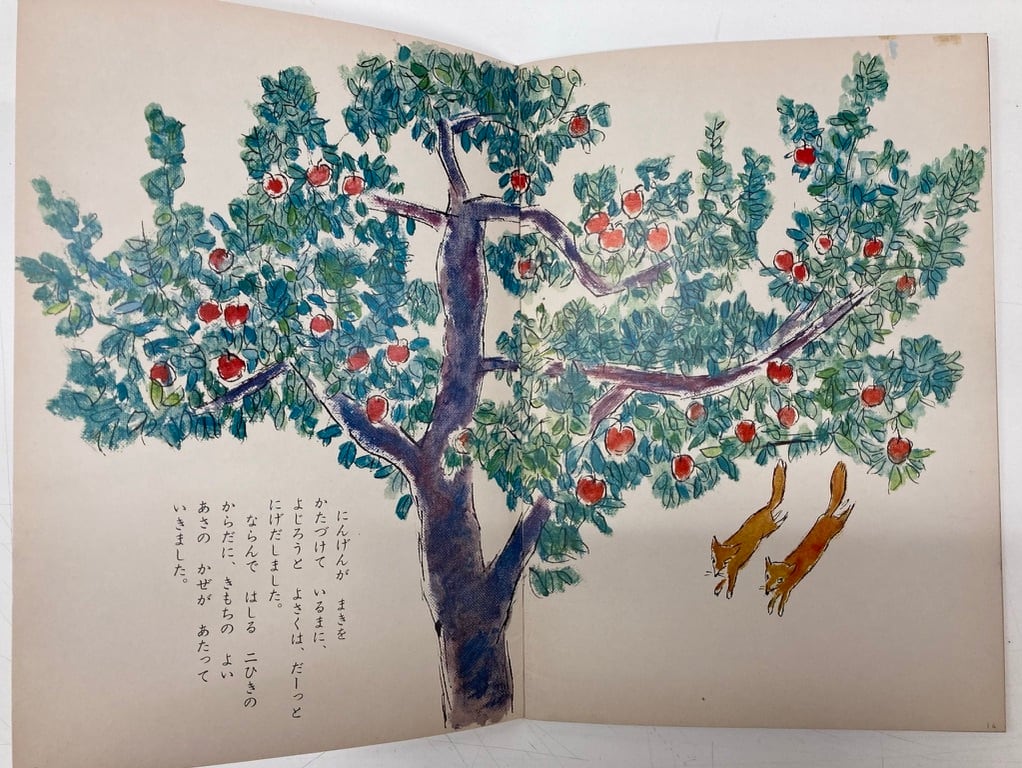 にんげんが　まきを
かたづけて　いるまに、
よじろうと　よさくは、だーっと
にげだしました。
ならんで　はしる　二ひきの
からだに、きもちの　よい
あさの　かぜが　あたって
いきました。